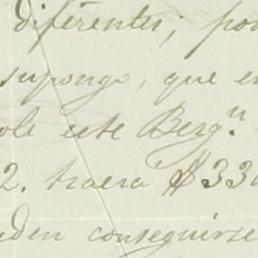 diferentes; po
supongo, que e
ole este Berg.n
2. traera $33
den conseguirse